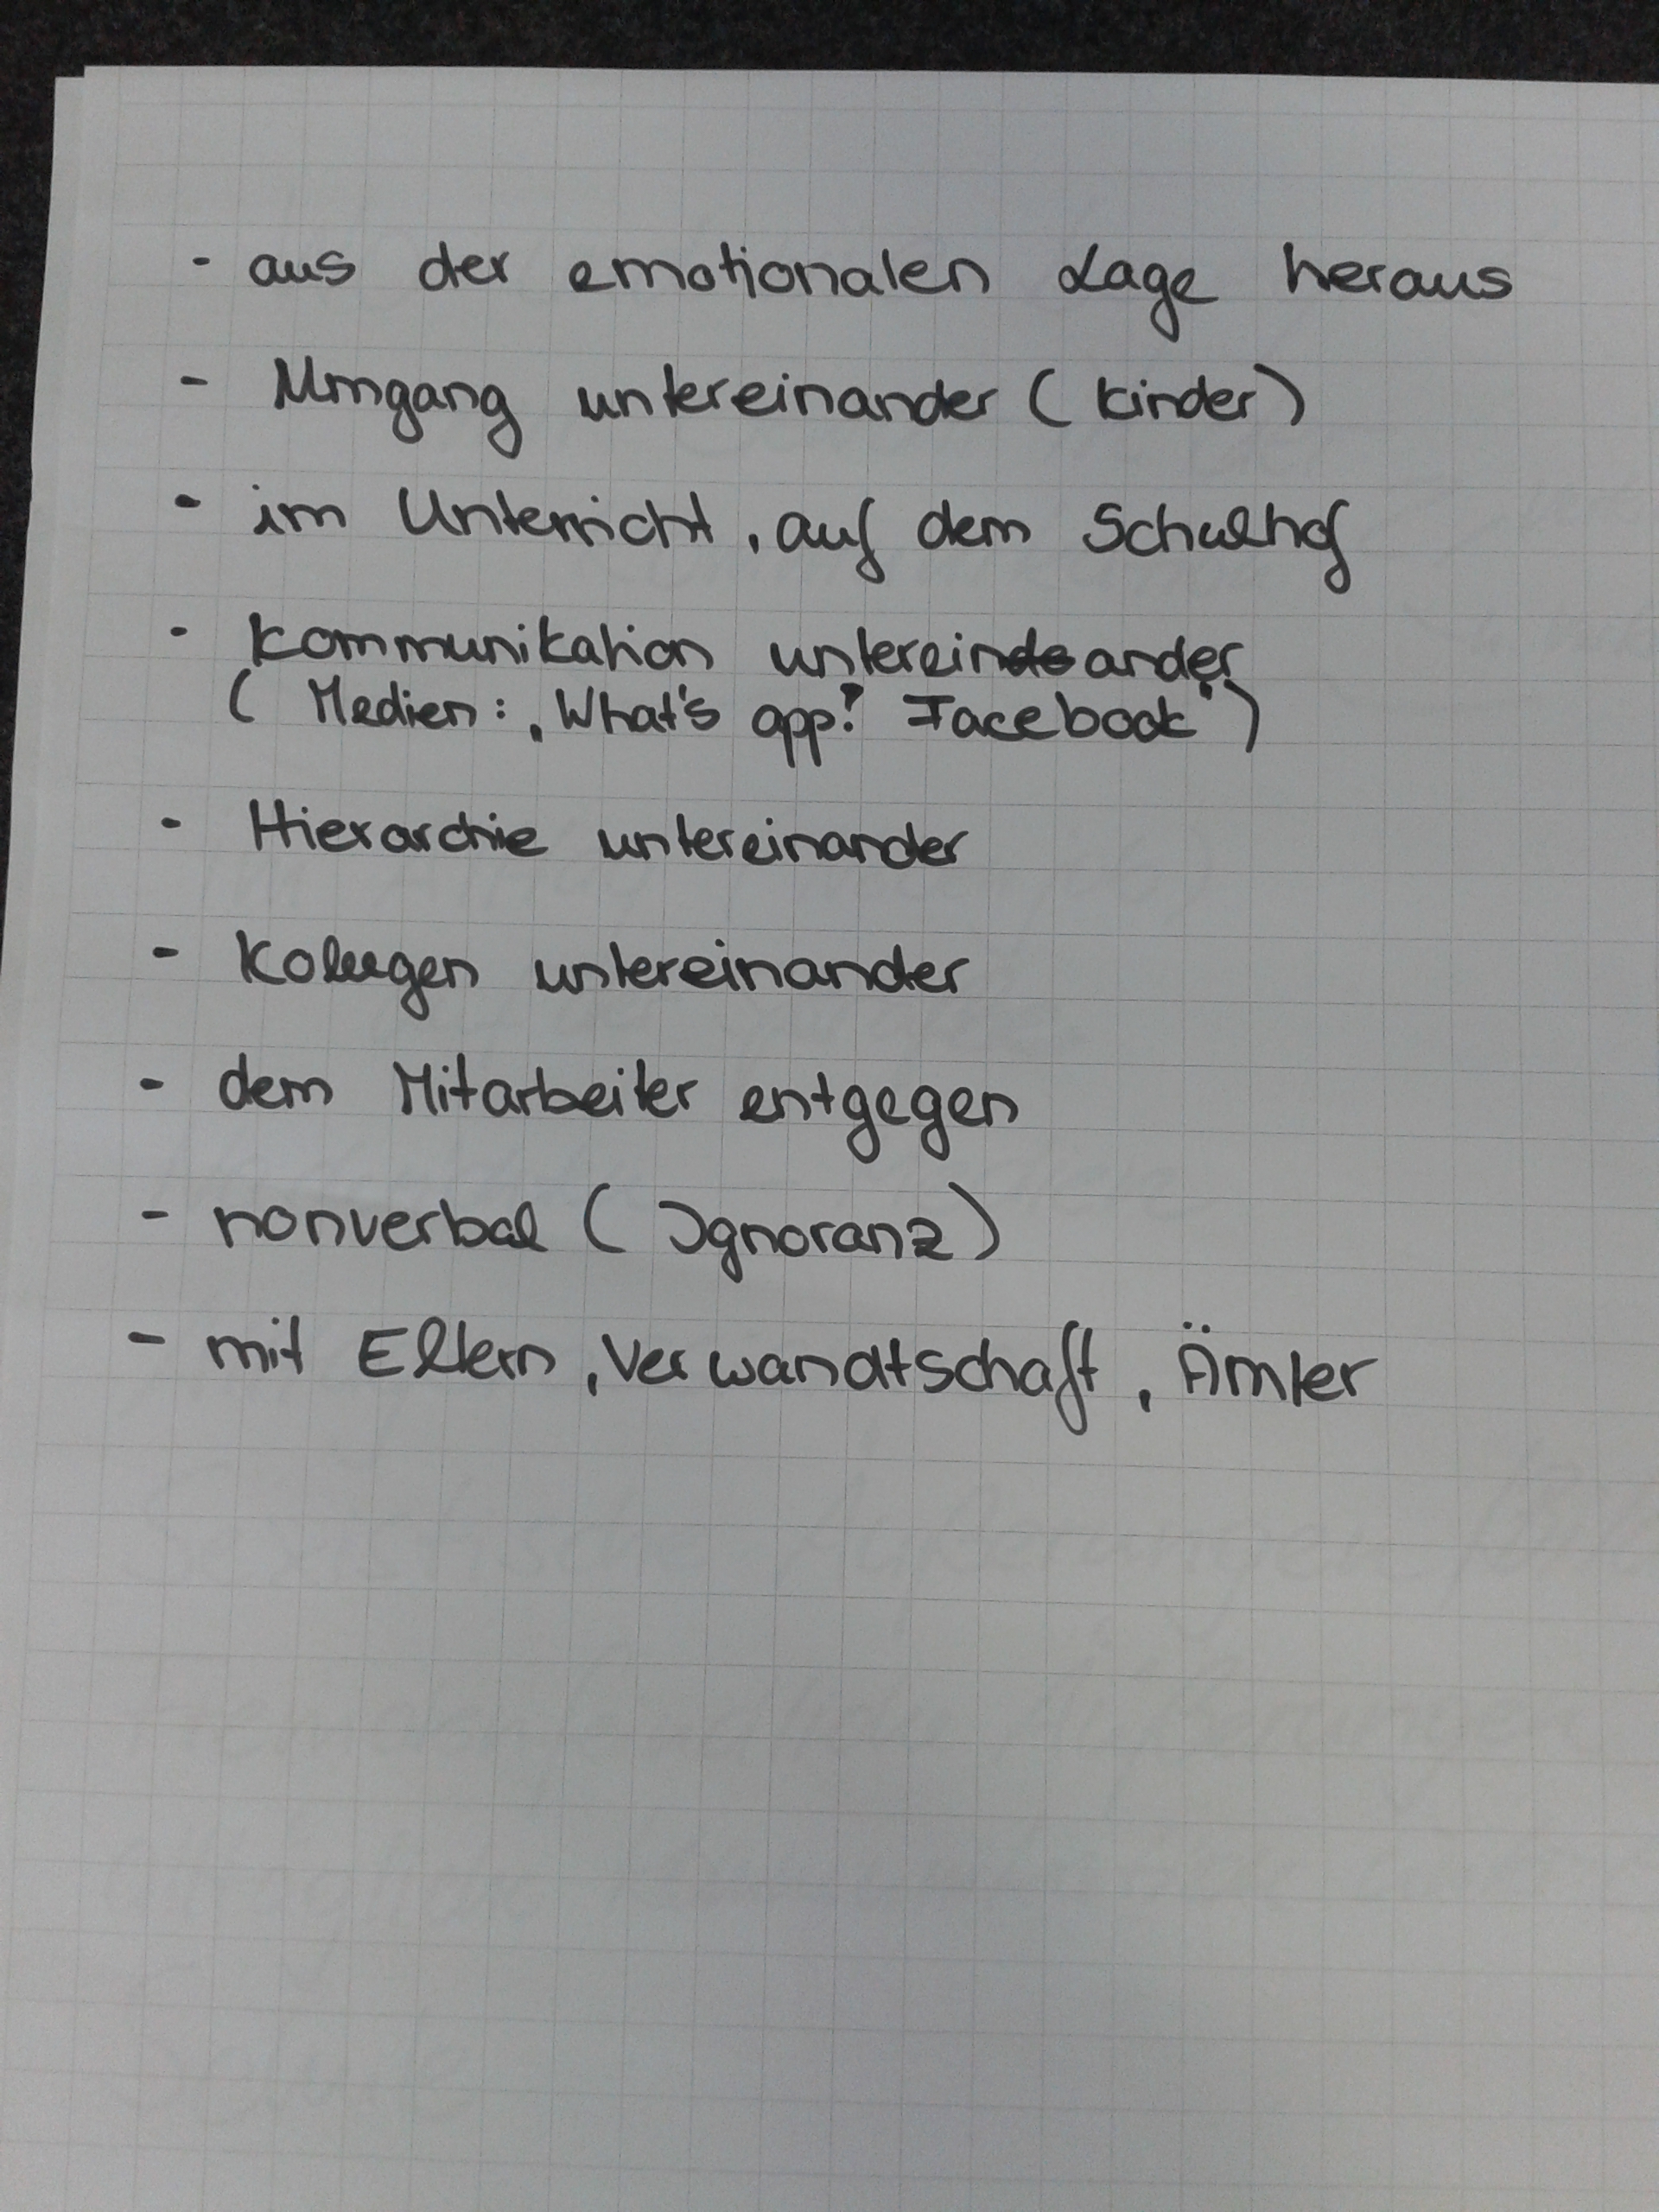 - aus der emotionalen Lage heraus
- Umgang untereinander (Kinder)
- im Unterricht, auf dem Schulhof
- Kommunikation untereinander
( Medien: "What's app" Facebook")
- Hierarchie untereinander
- Kollegen untereinander
- dem Mitarbeiter entgegen
- nonverbal ( Ignoranz)
- mit Eltern, Verwandtschaft, Ämter